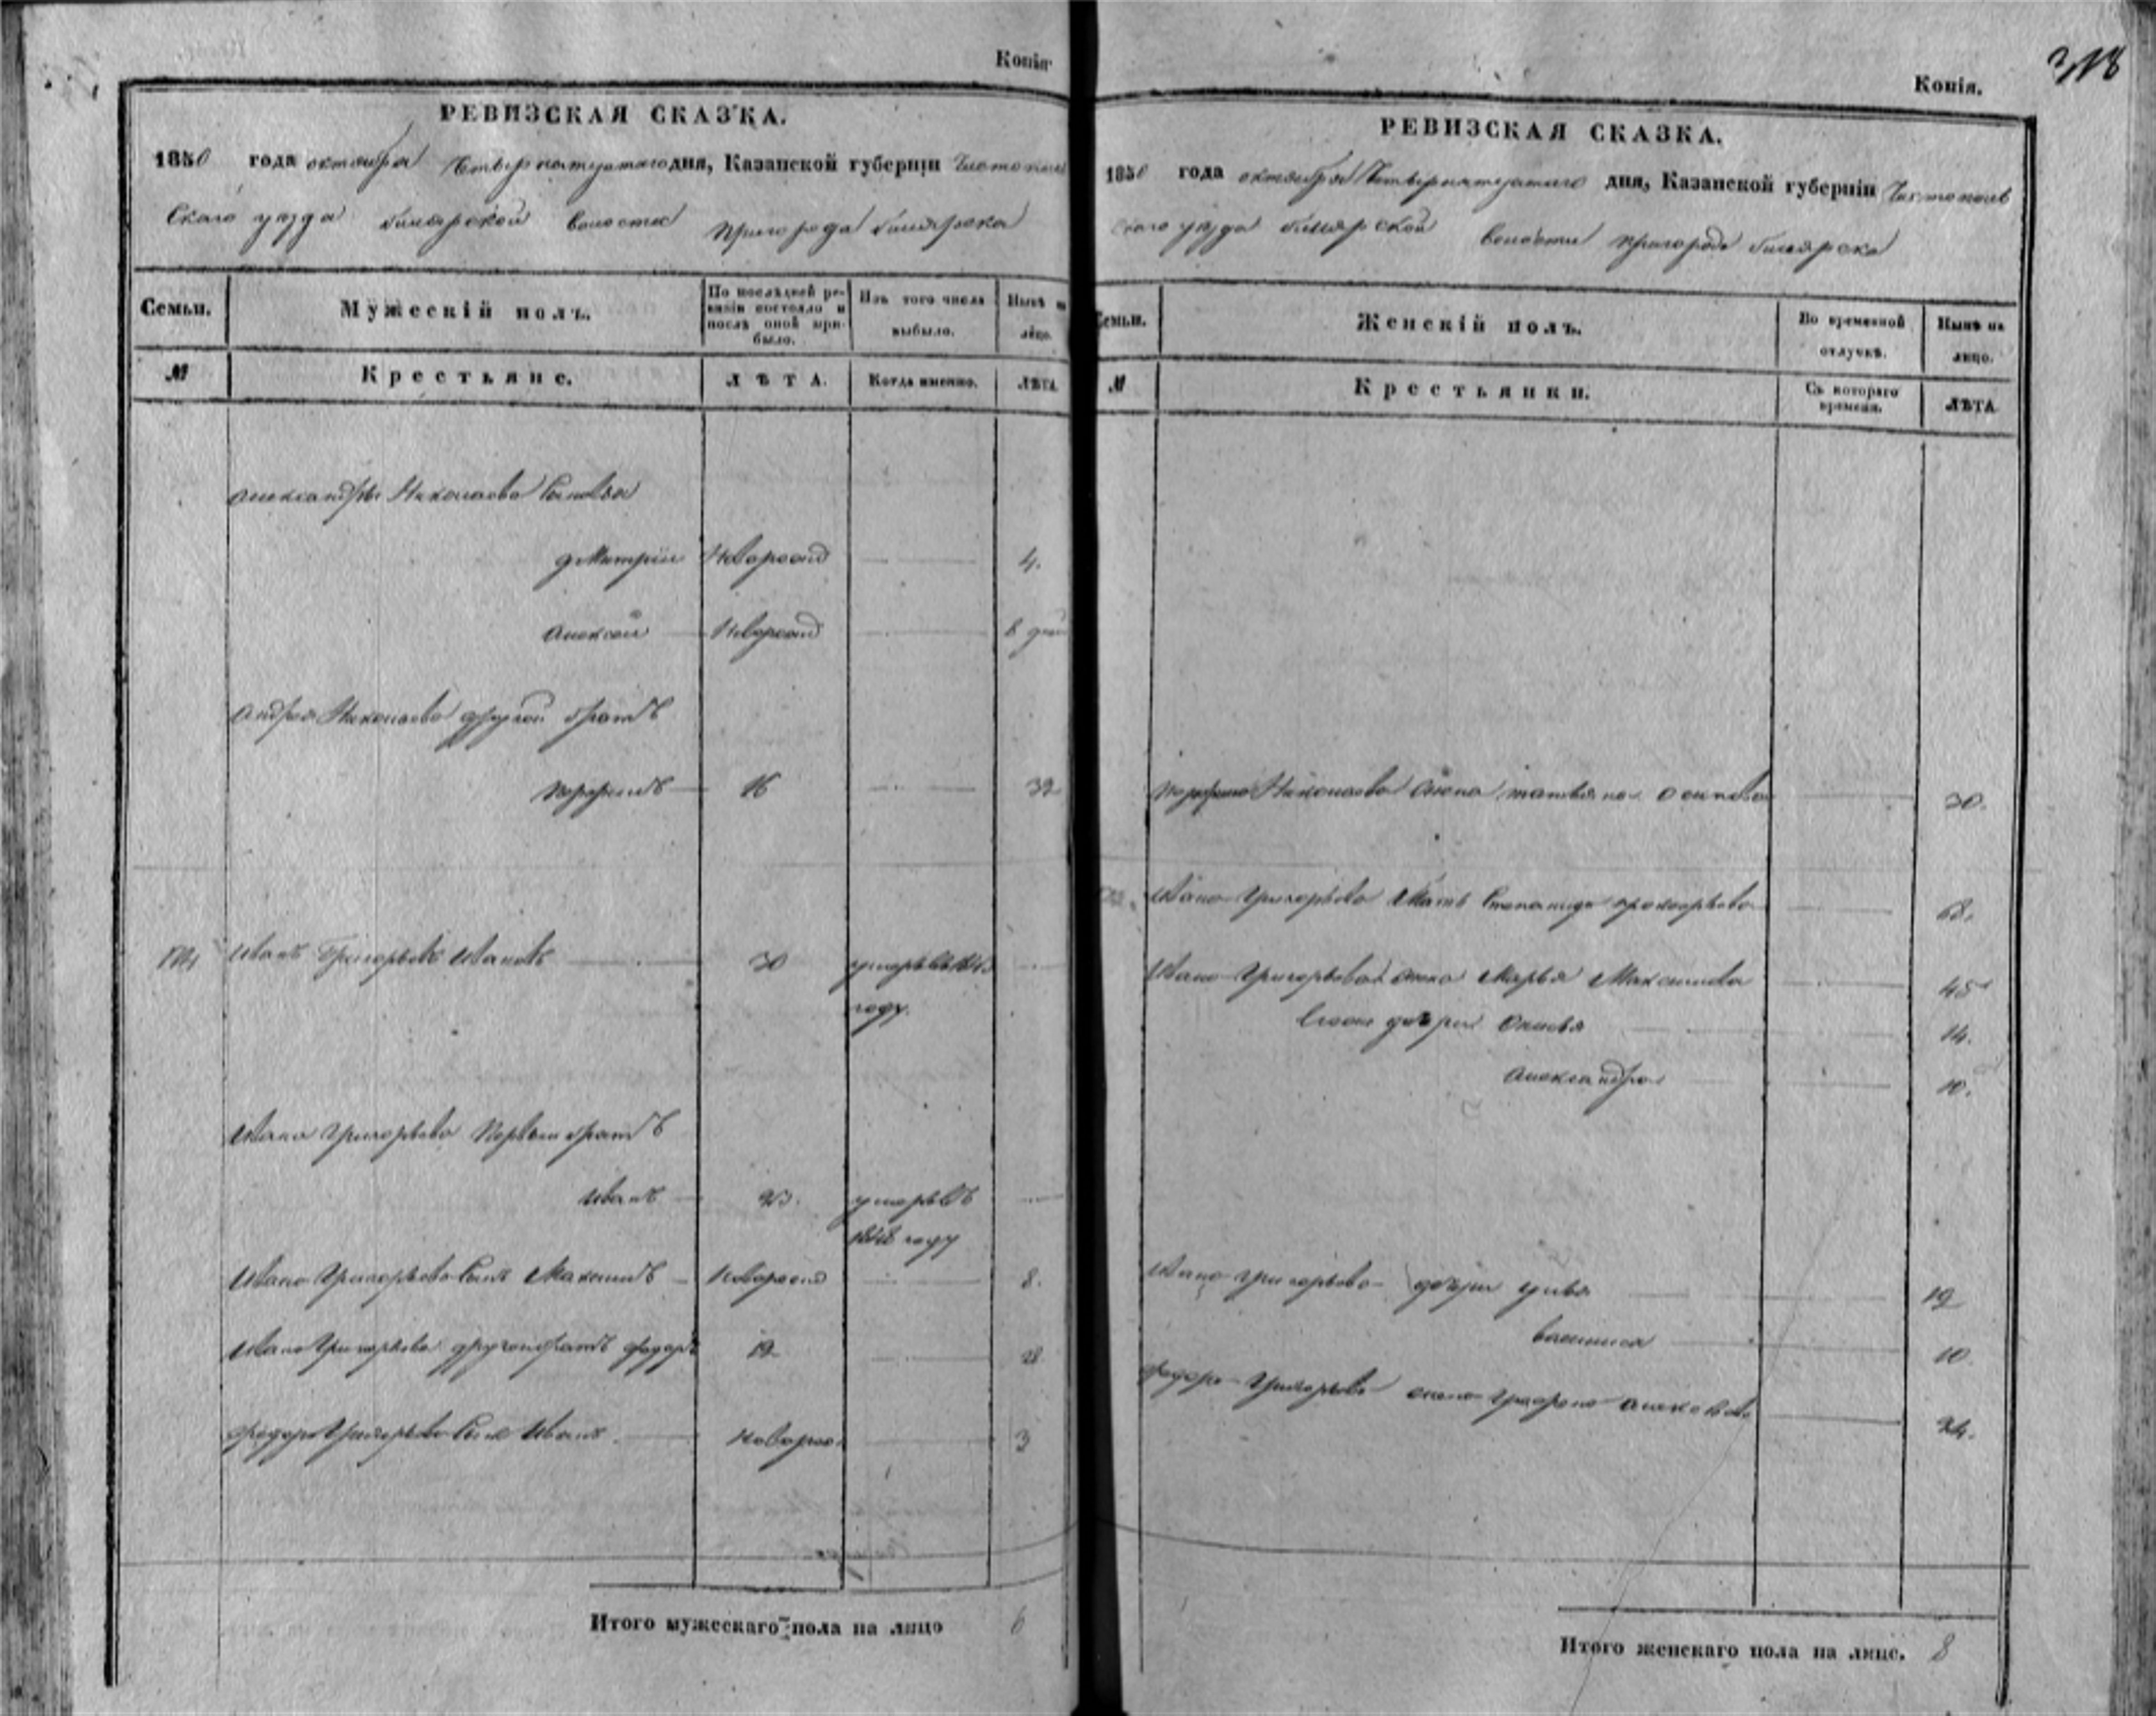 Копія
РЕВИЗСКАЯ СКАЗКА.
1850 года октября дня, Казанской губерніи Чистополь
скаго уезда билярской волости пригорода билярска
Семьи. Мужескій полъ. По послѣдней ревизіи состояло и послѣ оной прибыло. Изъ того числа выбыло. Нынѣ на лицо.
№ Крестьяне. ЛѢТА. Когда именно. ЛѢТА
александра Николаева сыновья
дмитрій Новорожд 4.
алексей Новорожд
андрея Николаева другой братъ
16 32
Иванъ Григорьевъ Ивановъ 30 умеръ въ
году.
Ивана Григорьева Первый братъ
Иванъ 23. умеръ въ
1848 году
Ивана Григорьева Сынъ Максимъ Новорожд 8.
Ивана Григорьева другой братъ федоръ 12 28
федора Григорьева Сынъ Иванъ. Новорож 3
Итого мужескаго пола на лицо 6
318
Копія.
РЕВИЗСКАЯ СКАЗКА.
1850 года октября дня, Казанской губерніи Чистополь
скаго уезда билярской волости пригорода билярска
Семьи. Женскій полъ. Во временной отлучкѣ. Нынѣ на лицо.
№ Крестьянки. Съ котораго времени. ЛѢТА
Николаева жена татьяна осипова 30.
Ивана Григорьева Мать Степанида 68.
Ивана Григорьева жена Марья Максимова 45
дочери 14.
александра 10.
Ивана григорьева дочери 12
василиса 10
федора Григорьева жена 24.
Итого женскаго пола на лицо. 8